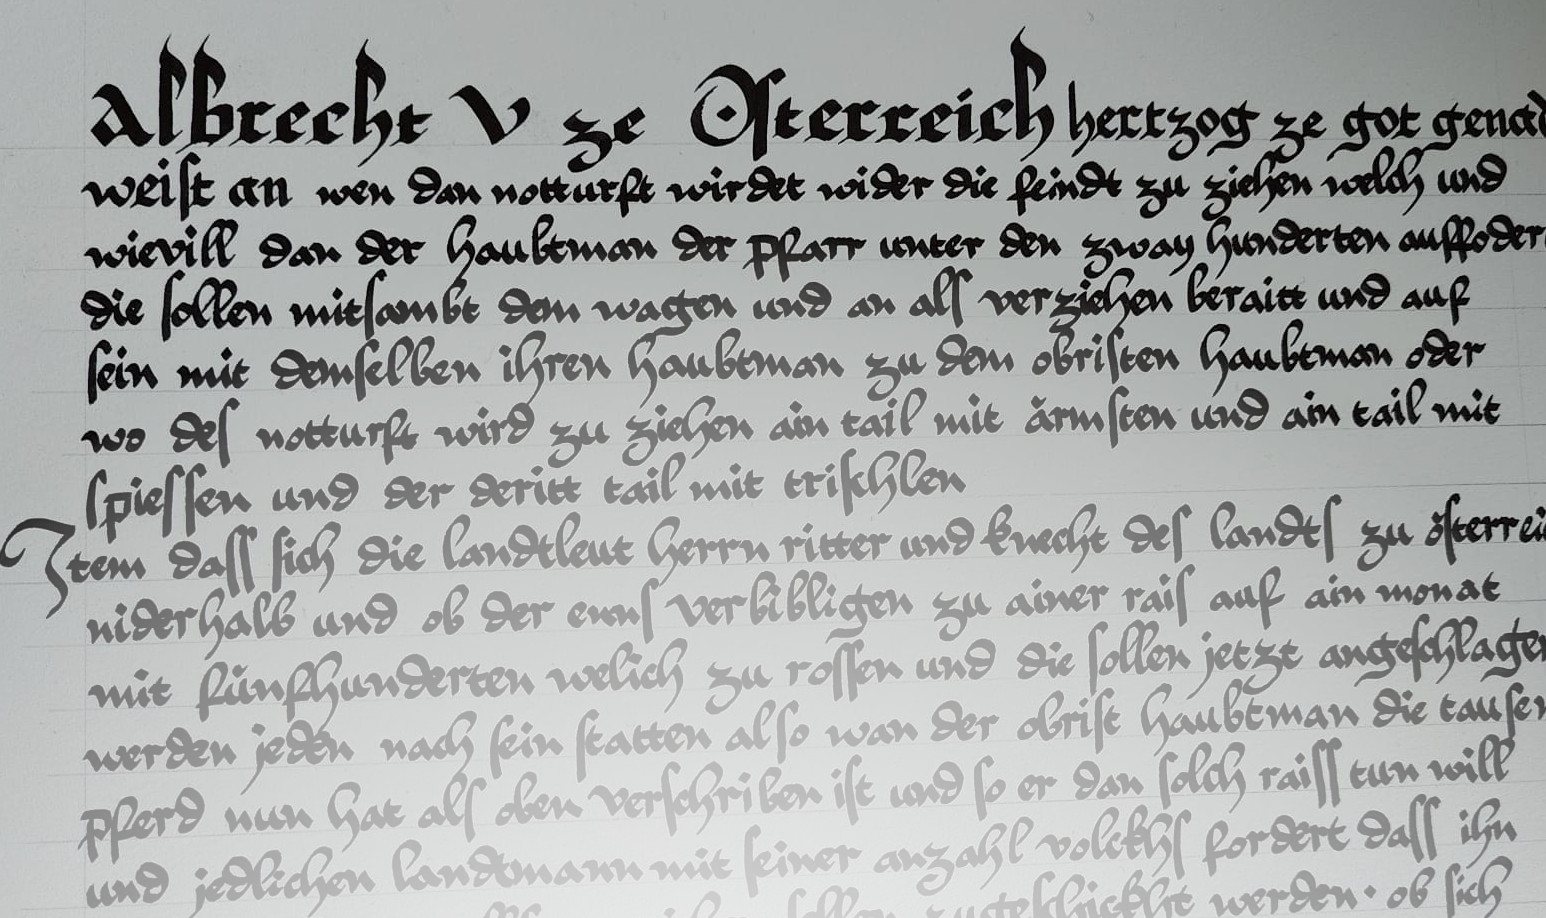 Albrecht V ze Österreich hertzog ze got genad
weist an wen dan notturft wirdet wider die feindt zu ziehen welch und
wievill dan der haubtman der pfarr unter den zway hunderten auffoder
die sollen mitsambt dem wagen und an als verziehen beraitt und auf
sein mit demselben ihren haubtman zu dem obristen haubtman oder
wo des notturft wird zu ziehen ain tail mit ärmsten und ain tail mit
spiessen und der deritt tail mit trischlen
Item dass sich die landtleut herrn ritter und knecht des landts zu österrei
niderhalb und ob der enns verbibligen zu ainer rais auf ain monat
mit fünfhunderten welich zu rossen und die sollen jetzt angeschlagen
werden jeden nach sein statten also wan der obrist haubtman die tausen
pferd nun hat als oben verschriben ist und so er dan solch raiss tun will
und jedlichen landtmann mit seiner anzahl volckhs fordert dass ihn
sollen zugeschickht werden · ob sich